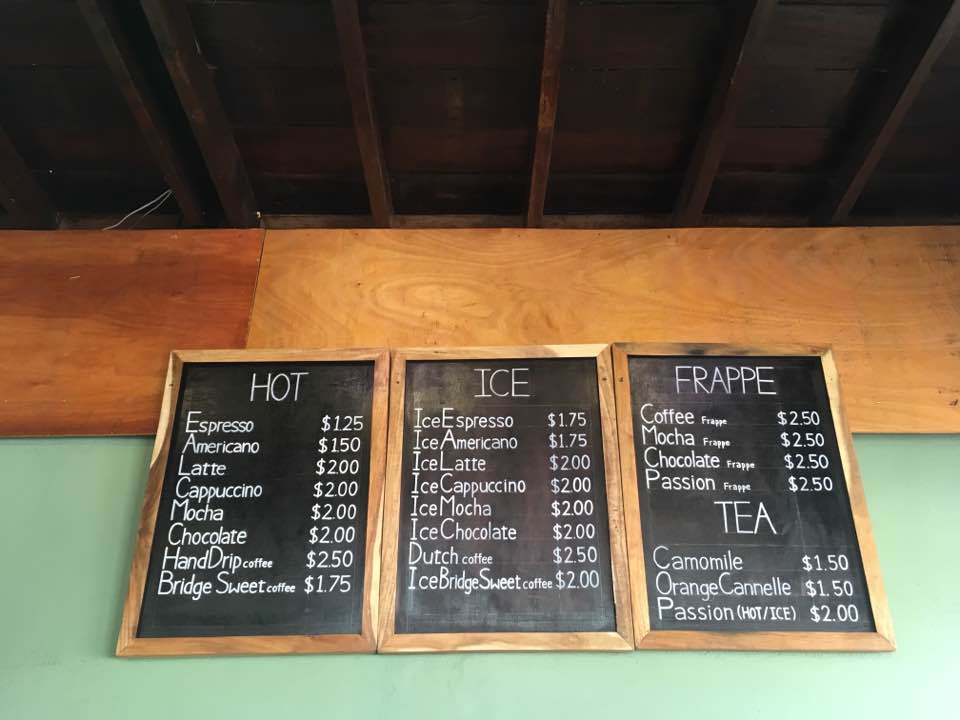 HOT
Espresso $1.25
Americano $1.50
Latte $2.00
Cappuccino $2.00
Mocha $2.00
Chocolate $2.00
HandDrip coffee $2.50
Bridge Sweet coffee $1.75
ICE
IceEspresso $1.75
IceAmericano $1.75
IceLatte $2.00
IceCappuccino $2.00
IceMocha $2.00
IceChocolate $2.00
Dutch coffee $2.50
IceBridgeSweet coffee $2.00
FRAPPE
Coffee Frappe $2.50
Mocha Frappe $2.50
Chocolate Frappe $2.50
Passion Frappe $2.50
TEA
Camomile $1.50
OrangeCannelle $1.50
Passion (HOT/ICE) $2.00